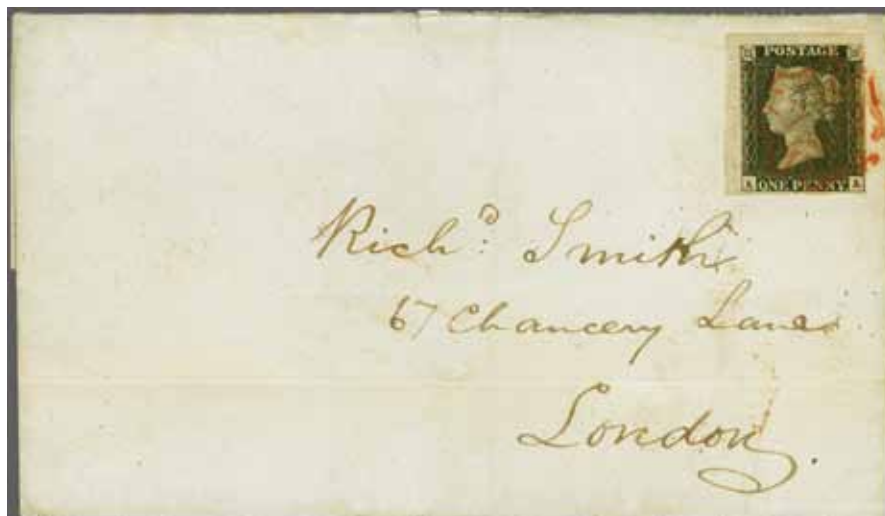 POSTAGE
A ONE PENNY A
Rich<sup>d</sup>: Smith
67 Chancery Lane
London.